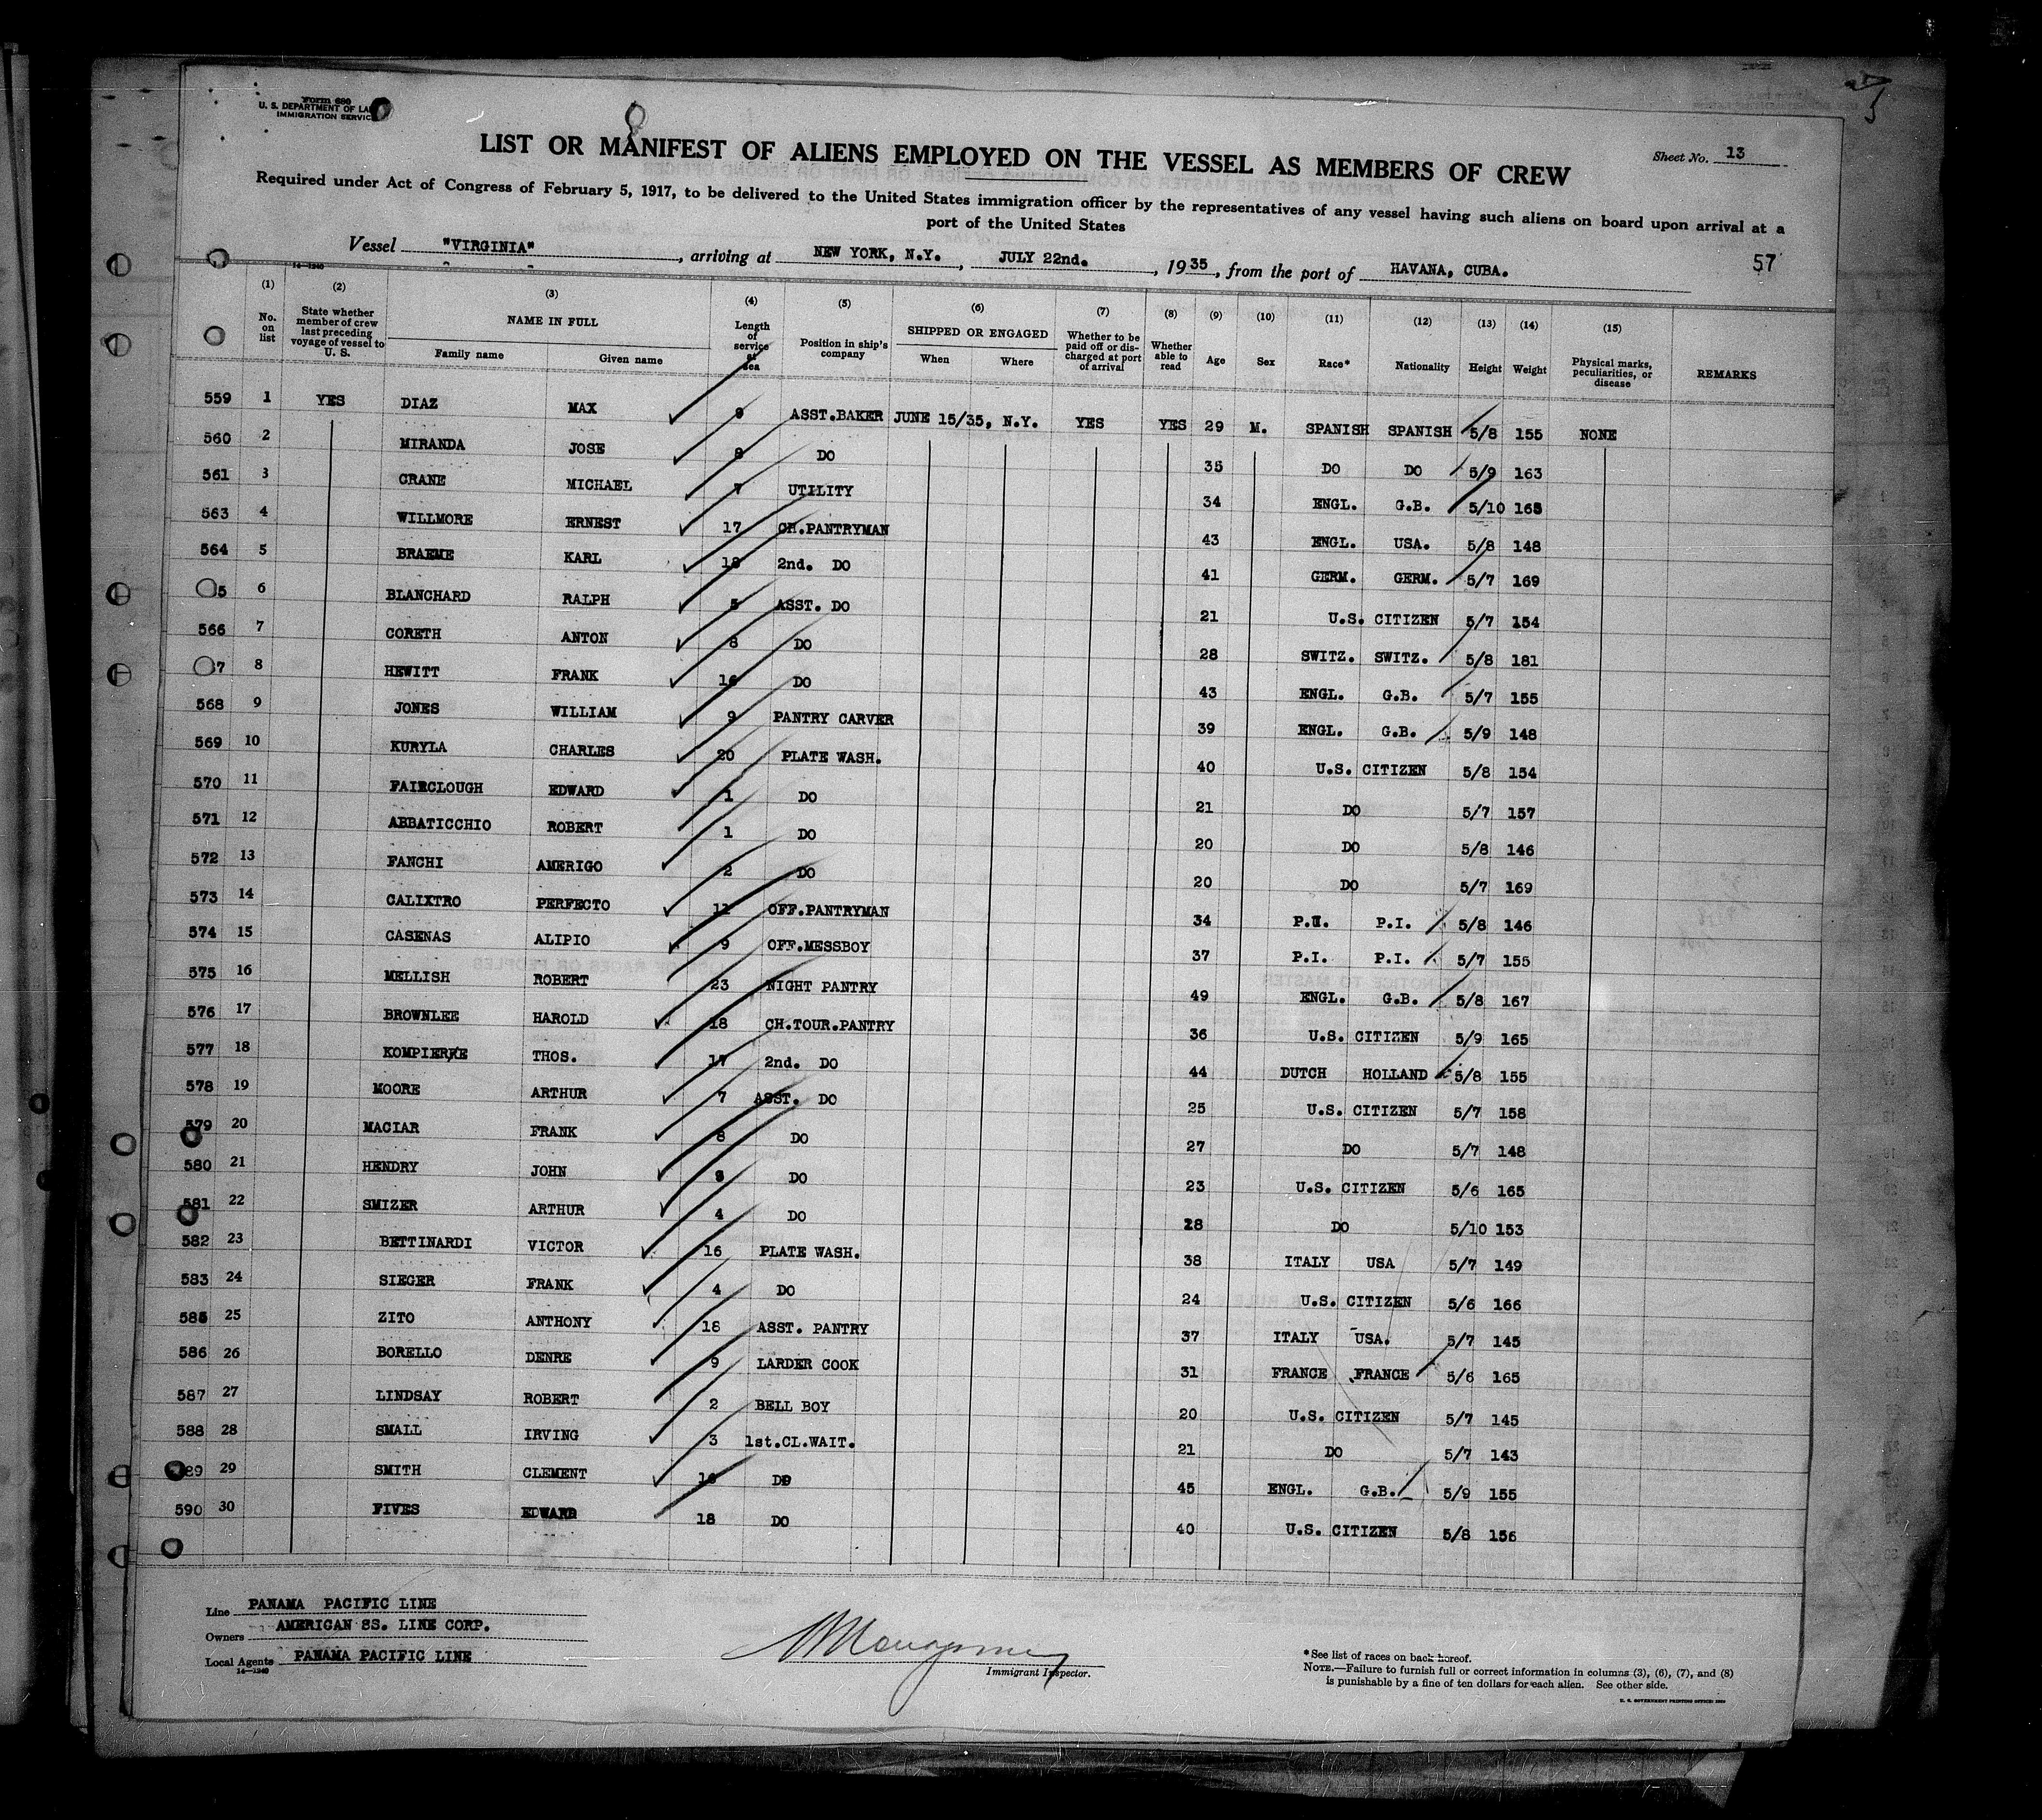 Form 680
U. S. DEPARTMENT OF LA
IMMIGRATION SERVIC
LIST OR MANIFEST OF ALIENS EMPLOYED ON THE VESSEL AS MEMBERS OF CREW
Sheet No. 13
Required under Act of Congress of February 5, 1917, to be delivered to the United States immigration officer by the representatives of any vessel having such aliens on board upon arrival at a
port of the United States
Vessel "VIRGINIA", arriving at NEW YORK, N.Y., JULY 22nd., 1935, from the port of HAVANA, CUBA. 57
(1) (2) (3) (4) (5) (6) (7) (8) (9) (10) (11) (12) (13) (14) (15)
No. on list State whether member of crew last preceding voyage of vessel to U. S. NAME IN FULL Family name Given name Length of service at sea Position in ship's company SHIPPED OR ENGAGED When Where Whether to be paid off or discharged at port of arrival Whether able to read Age Sex Race* Nationality Height Weight Physical marks, peculiarities, or disease REMARKS
559 1 YES DIAZ MAX ASST.BAKER JUNE 15/35, N.Y. YES YES 29 M. SPANISH SPANISH 5/8 155 NONE
560 2 MIRANDA JOSE DO 35 DO DO 5/9 163
561 3 CRANE MICHAEL 7 UTILITY 34 ENGL. G.B. 5/10 165
563 4 WILLMORE ERNEST 17 CH.PANTRYMAN 43 ENGL. USA. 5/8 148
564 5 BRAEME KARL 18 2nd. DO 41 GERM. GERM. 5/7 169
5 6 BLANCHARD RALPH 5 ASST. DO 21 U.S. CITIZEN 5/7 154
566 7 CORETH ANTON 8 DO 28 SWITZ. SWITZ. 5/8 181
7 8 HEWITT FRANK 16 DO 43 ENGL. G.B. 5/7 155
568 9 JONES WILLIAM 9 PANTRY CARVER 39 ENGL. G.B. 5/9 148
569 10 KURYLA CHARLES 20 PLATE WASH. 40 U.S. CITIZEN 5/8 154
570 11 FAIRCLOUGH EDWARD 1 DO 21 DO 5/7 157
571 12 ABBATICCHIO ROBERT 1 DO 20 DO 5/8 146
572 13 FANCHI AMERIGO 2 DO 20 DO 5/7 169
573 14 CALIXTRO PERFECTO 11 OFF.PANTRYMAN 34 P.I. P.I. 5/8 146
574 15 CASENAS ALIPIO 9 OFF.MESSBOY 37 P.I. P.I. 5/7 155
575 16 MELLISH ROBERT 23 NIGHT PANTRY 49 ENGL. G.B. 5/8 167
576 17 BROWNLEE HAROLD 18 CH.TOUR.PANTRY 36 U.S. CITIZEN 5/9 165
577 18 KOMPIERKE THOS. 17 2nd. DO 44 DUTCH HOLLAND 5/8 155
578 19 MOORE ARTHUR 7 ASST. DO 25 U.S. CITIZEN 5/7 158
579 20 MACIAR FRANK 8 DO 27 DO 5/7 148
580 21 HENDRY JOHN DO 23 U.S. CITIZEN 5/6 165
581 22 SMIZER ARTHUR 4 DO 28 DO 5/10 153
582 23 BETTINARDI VICTOR 16 PLATE WASH. 38 ITALY USA 5/7 149
583 24 SIEGER FRANK 4 DO 24 U.S. CITIZEN 5/6 166
585 25 ZITO ANTHONY 18 ASST. PANTRY 37 ITALY USA. 5/7 145
586 26 BORELLO DENRE 9 LARDER COOK 31 FRANCE FRANCE 5/6 165
587 27 LINDSAY ROBERT 2 BELL BOY 20 U.S. CITIZEN 5/7 145
588 28 SMALL IRVING 3 1st.CL.WAIT. 21 DO 5/7 143
89 29 SMITH CLEMENT DO 45 ENGL. G.B. 5/9 155
590 30 FIVES EDWARD 18 DO 40 U.S. CITIZEN 5/8 156
Line PANAMA PACIFIC LINE
Owners AMERICAN SS. LINE CORP.
Local Agents PANAMA PACIFIC LINE
14—1240
Immigrant Inspector.
*See list of races on back hereof.
NOTE.—Failure to furnish full or correct information in columns (3), (6), (7), and (8)
is punishable by a fine of ten dollars for each alien. See other side.
U. S. GOVERNMENT PRINTING OFFICE: 1930